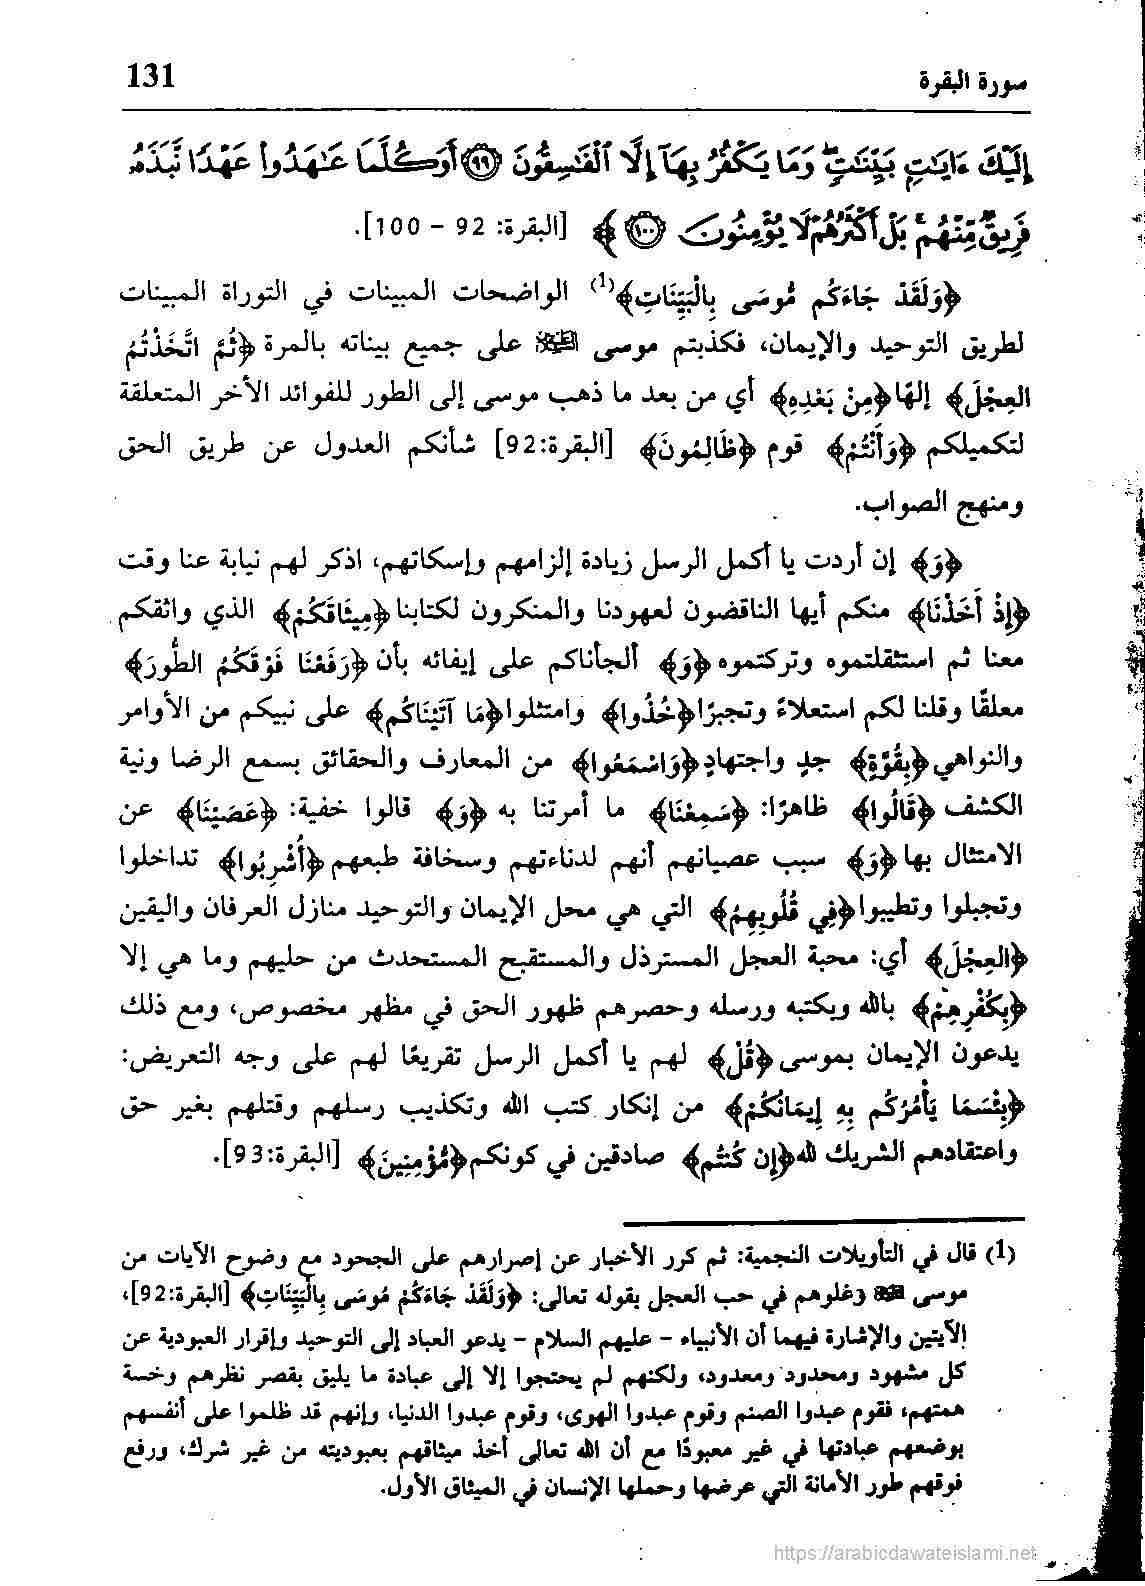 سورة البقرة 131
إِلَيْكَ ءَايَٰتٍۭ بَيِّنَٰتٍۖ وَمَا يَكْفُرُ بِهَآ إِلَّا ٱلْفَٰسِقُونَ ﴿٩٩﴾ أَوَكُلَّمَا عَٰهَدُوا۟ عَهْدًا نَّبَذَهُۥ
فَرِيقٌ مِّنْهُمۚ بَلْ أَكْثَرُهُمْ لَا يُؤْمِنُونَ ﴿١٠٠﴾ ﴾ [البقرة: 92 - 100].
﴿وَلَقَدْ جَاءَكُم مُّوسَى بِالْبَيِّنَاتِ﴾(1) الواضحات المبينات في التوراة المبينات
لطريق التوحيد والإيمان، فكذبتم موسى ﷺ على جميع بيناته بالمرة ﴿ثُمَّ اتَّخَذْتُمُ
العِجْلَ﴾ إلهًا ﴿مِنْ بَعْدِهِ﴾ أي من بعد ما ذهب موسى إلى الطور للفوائد الأخر المتعلقة
لتكميلكم ﴿وَأَنْتُمْ﴾ قوم ﴿ظَالِمُونَ﴾ [البقرة:92] شأنكم العدول عن طريق الحق
ومنهج الصواب.
﴿وَ﴾ إن أردت يا أكمل الرسل زيادة إلزامهم وإسكاتهم، اذكر لهم نيابة عنا وقت
﴿إِذْ أَخَذْنَا﴾ منكم أيها الناقضون لعهودنا والمنكرون لكتابنا ﴿مِيثَاقَكُمْ﴾ الذي واثقكم
معنا ثم استثقلتموه وتركتموه ﴿وَ﴾ ألجأناكم على إيفائه بأن ﴿رَفَعْنَا فَوْقَكُمُ الطُّورَ﴾
معلقًا وقلنا لكم استعلاءً وتجبرًا ﴿خُذُوا﴾ وامتثلوا ﴿مَا آتَيْنَاكُم﴾ على نبيكم من الأوامر
والنواهي ﴿بِقُوَّةٍ﴾ جدٍ واجتهادٍ ﴿وَاسْمَعُوا﴾ من المعارف والحقائق بسمع الرضا ونية
الكشف ﴿قَالُوا﴾ ظاهرًا: ﴿سَمِعْنَا﴾ ما أمرتنا به ﴿وَ﴾ قالوا خفية: ﴿عَصَيْنَا﴾ عن
الامتثال بها ﴿وَ﴾ سبب عصيانهم أنهم لدناءتهم وسخافة طبعهم ﴿أُشْرِبُوا﴾ تداخلوا
وتجبلوا وتطيبوا ﴿فِي قُلُوبِهِمُ﴾ التي هي محل الإيمان والتوحيد منازل العرفان واليقين
﴿العِجْلَ﴾ أي: محبة العجل المسترذل والمستقبح المستحدث من حليهم وما هي إلا
﴿بِكُفْرِهِمْ﴾ بالله وبكتبه ورسله وحصرهم ظهور الحق في مظهر مخصوص، ومع ذلك
يدعون الإيمان بموسى ﴿قُلْ﴾ لهم يا أكمل الرسل تقريعًا لهم على وجه التعريض:
﴿بِئْسَمَا يَأْمُرُكُم بِهِ إِيمَانُكُمْ﴾ من إنكار كتب الله وتكذيب رسلهم وقتلهم بغير حق
واعتقادهم الشريك لله ﴿إِن كُنتُم﴾ صادقين في كونكم ﴿مُؤْمِنِينَ﴾ [البقرة:93].
(1) قال في التأويلات النجمية: ثم كرر الأخبار عن إصرارهم على الجحود مع وضوح الآيات من
موسى ﷺ وغلوهم في حب العجل بقوله تعالى: ﴿وَلَقَدْ جَاءَكُمْ مُوسَى بِالْبَيِّنَاتِ﴾ [البقرة:92]،
الآيتين والإشارة فيهما أن الأنبياء - عليهم السلام - يدعو العباد إلى التوحيد وإقرار العبودية عن
كل مشهود ومحدود ومعدود، ولكنهم لم يحتجوا إلا إلى عبادة ما يليق بقصر نظرهم وخسة
همتهم، فقوم عبدوا الصنم وقوم عبدوا الهوى، وقوم عبدوا الدنيا، وإنهم قد ظلموا على أنفسهم
بوضعهم عبادتها في غير معبودًا مع أن الله تعالى أخذ ميثاقهم بعبوديته من غير شرك، ورفع
فوقهم طور الأمانة التي عرضها وحملها الإنسان في الميثاق الأول.
https://arabicdawateislami.net